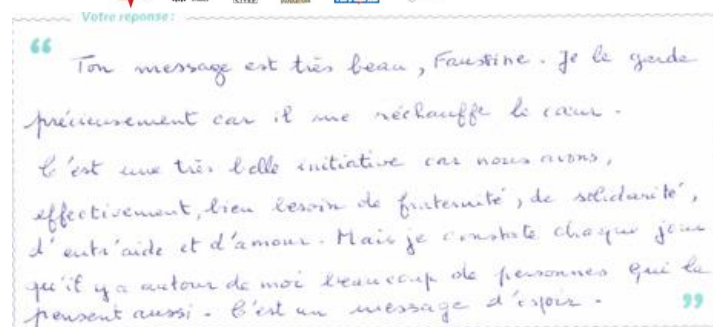 Votre réponse :
“ Ton message est très beau, Faustine. Je le garde
précieusement car il me réchauffe le cœur.
C'est une très belle initiative car nous avons,
effectivement, bien besoin de fraternité, de solidarité,
d'entr'aide et d'amour. Mais je constate chaque jour
qu'il y a autour de moi beaucoup de personnes qui le
pensent aussi. C'est un message d'espoir. ”